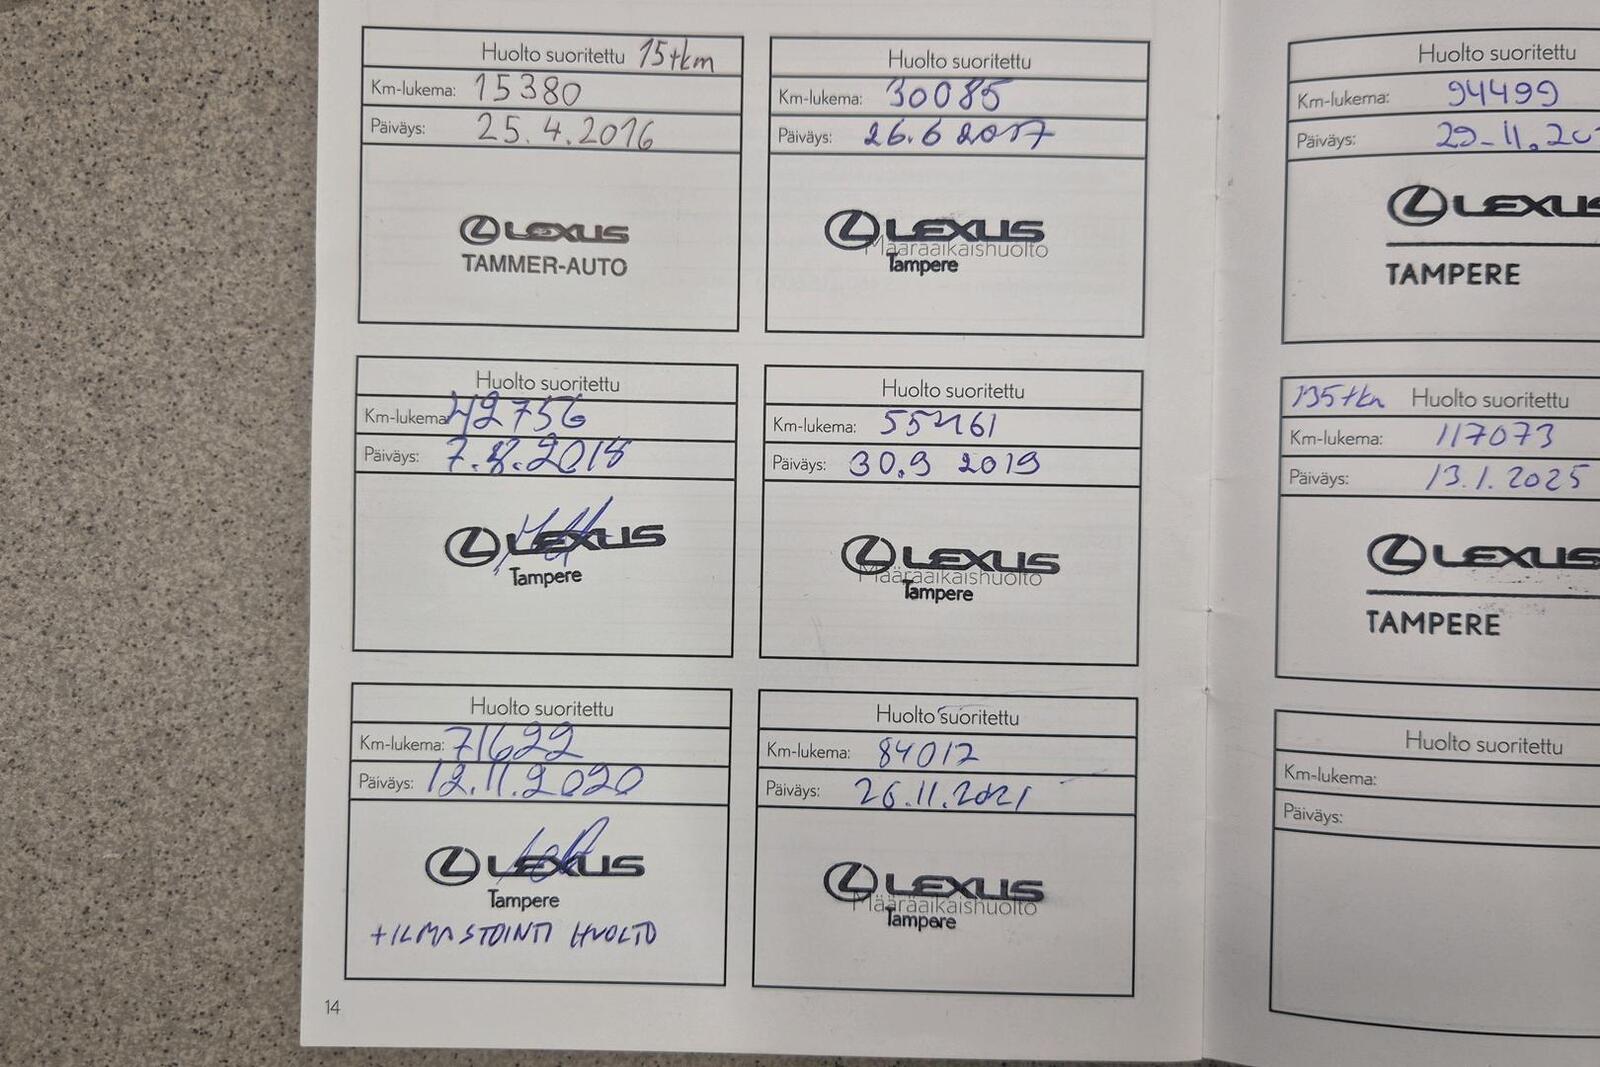 Huolto suoritettu 15tkm
Km-lukema: 15380
Päiväys: 25.4.2016
LEXUS
TAMMER-AUTO
Huolto suoritettu
Km-lukema: 30085
Päiväys: 26.6 2017
LEXUS
Määräaikaishuolto
Tampere
Huolto suoritettu
Km-lukema: 42756
Päiväys: 7.8.2018
LEXUS
Tampere
Huolto suoritettu
Km-lukema: 55161
Päiväys: 30.9 2019
LEXUS
Määräaikaishuolto
Tampere
Huolto suoritettu
Km-lukema: 71622
Päiväys: 12.11.2020
LEXUS
Tampere
+ILMASTOINTI HUOLTO
Huolto suoritettu
Km-lukema: 84012
Päiväys: 26.11.2021
LEXUS
Määräaikaishuolto
Tampere
14
Huolto suoritettu
Km-lukema: 94499
Päiväys: 29.11.20
LEXUS
TAMPERE
135tkm Huolto suoritettu
Km-lukema: 117073
Päiväys: 13.1.2025
LEXUS
TAMPERE
Huolto suoritettu
Km-lukema:
Päiväys: